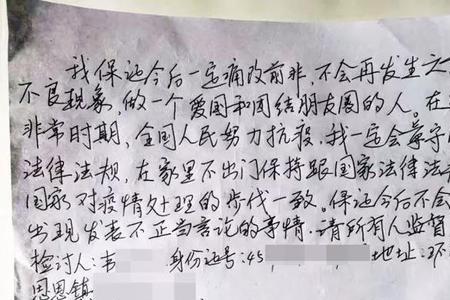 我保证今后一定痛改前非,不会再发生之
不良现象,做一个爱国和团结朋友圈的人。在
非常时期,全国人民努力抗疫,我一定会尊守
法律法规,在家里不出门保持跟国家法律法
国家对疫情处理的步伐一致。保证今后不会
出现发表不正当言论的事情。请所有人监督
检讨人:韦 身份证号:45 地址:环
思恩镇